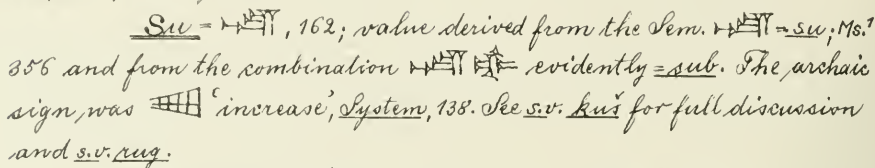 Su = 𒋢, 162; value derived from the Sem. 𒋢 = su; Ms.¹
356 and from the combination evidently = sub. The archaic
sign, was 'increase', System, 138. See s.v. kuš for full discussion
and s.v. rug.